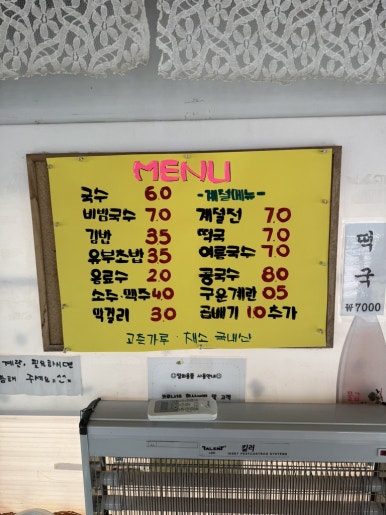 MENU
국수 6.0
비빔국수 7.0
김밥 3.5
유부초밥 3.5
음료수 2.0
소주·맥주 4.0
막걸리 3.0
-계절메뉴-
계절전 7.0
떡국 7.0
여름국수 7.0
콩국수 8.0
구운계란 0.5
곱빼기 1.0 추가
고춧가루·채소 국내산
떡국
₩7000
계란, 필요하시면
해 주세요.
TALENT 킬러